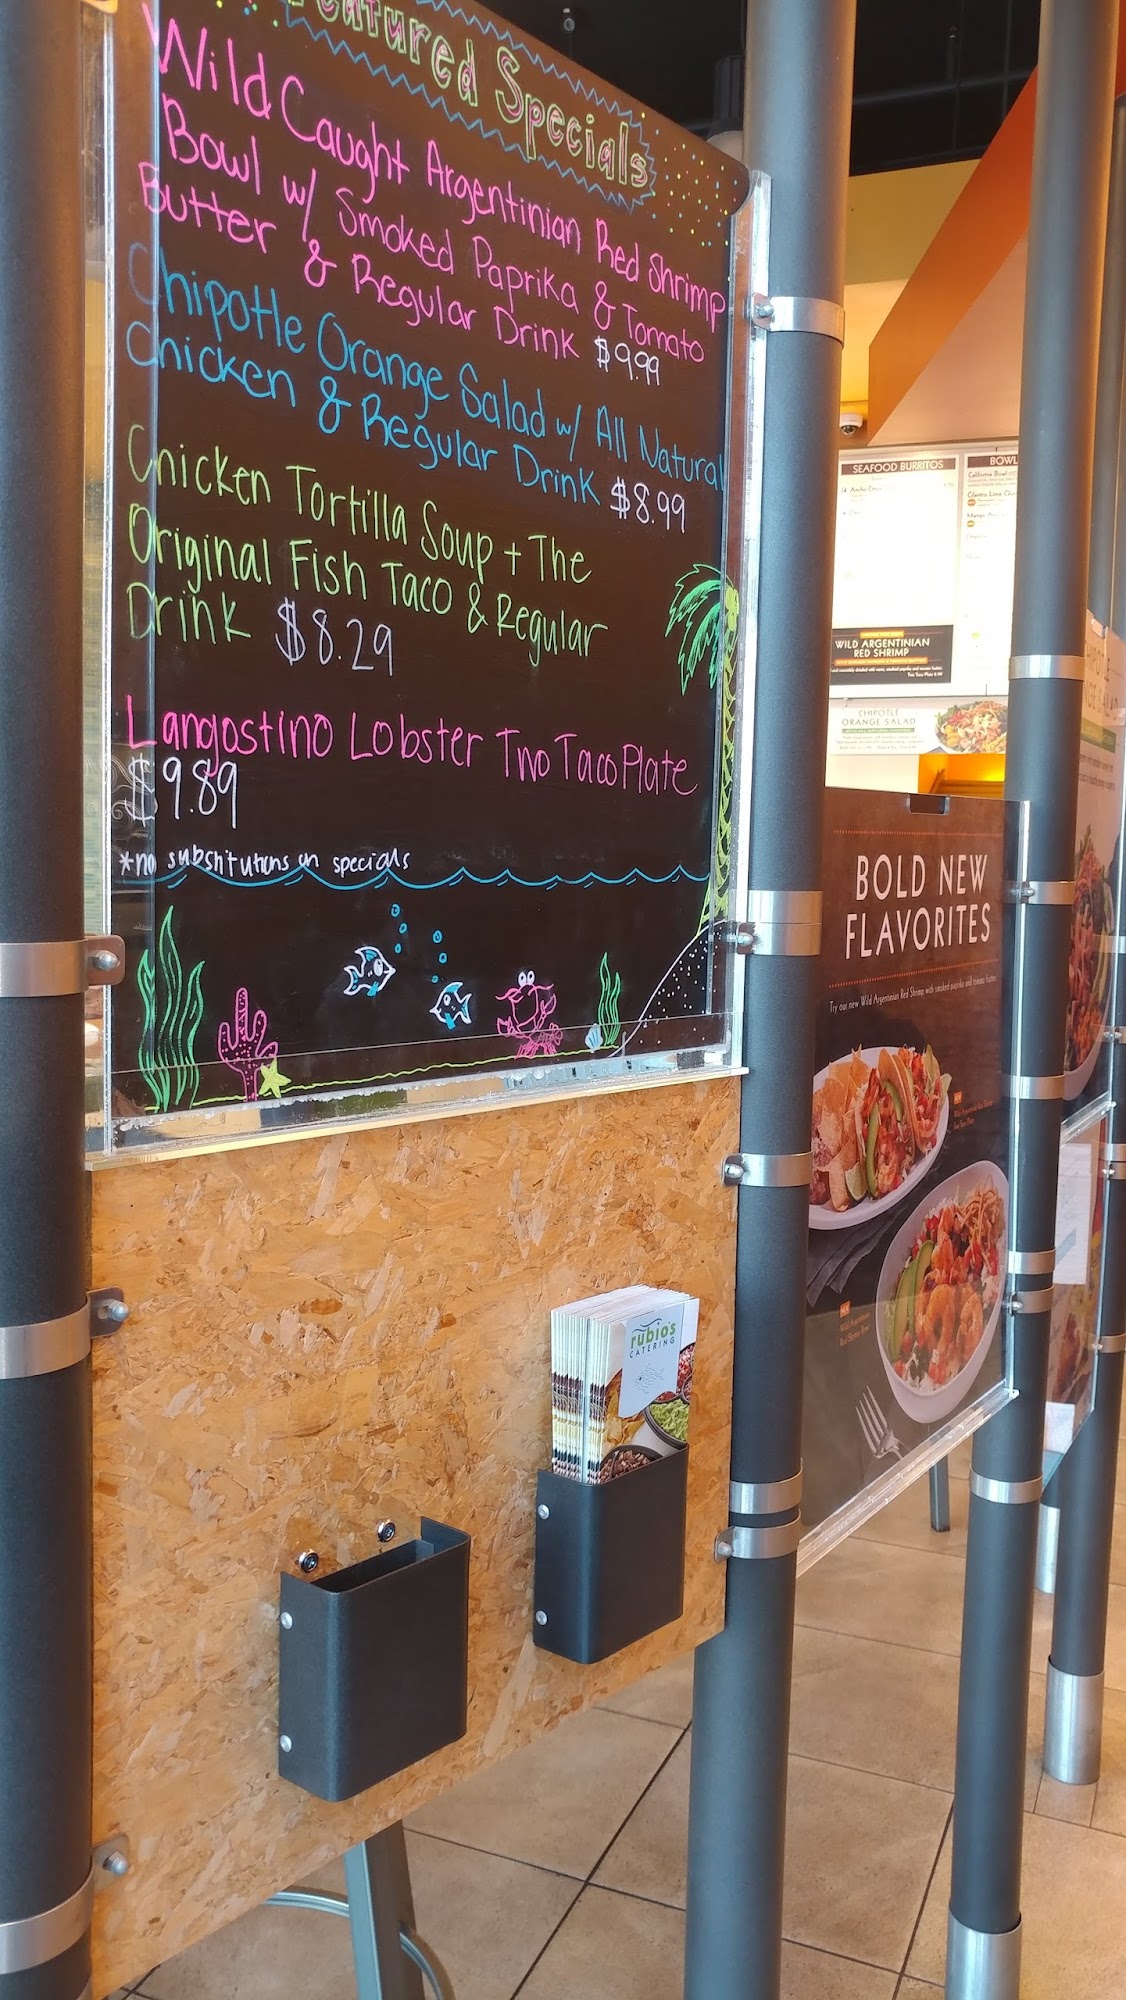 Featured Specials
Wild Caught Argentinian Red Shrimp
Bowl w/ Smoked Paprika & Tomato
Butter & Regular Drink $9.99
Chipotle Orange Salad w/ All Natural
Chicken & Regular Drink $8.99
Chicken Tortilla Soup + The
Original Fish Taco & Regular
Drink $8.29
Langostino Lobster Two Taco Plate
$9.89
*no substitutions on specials
SEAFOOD BURRITOS
BOWL
California Bowl
WILD ARGENTINIAN
RED SHRIMP
CHIPOTLE
ORANGE SALAD
BOLD NEW
FLAVORITES
Try our new Wild Argentinian Red Shrimp with smoked paprika and tomato butter.
NEW
Wild Argentinian Red Shrimp
Two Taco Plate
NEW
Wild Argentinian
Red Shrimp Bowl
rubio's
CATERING